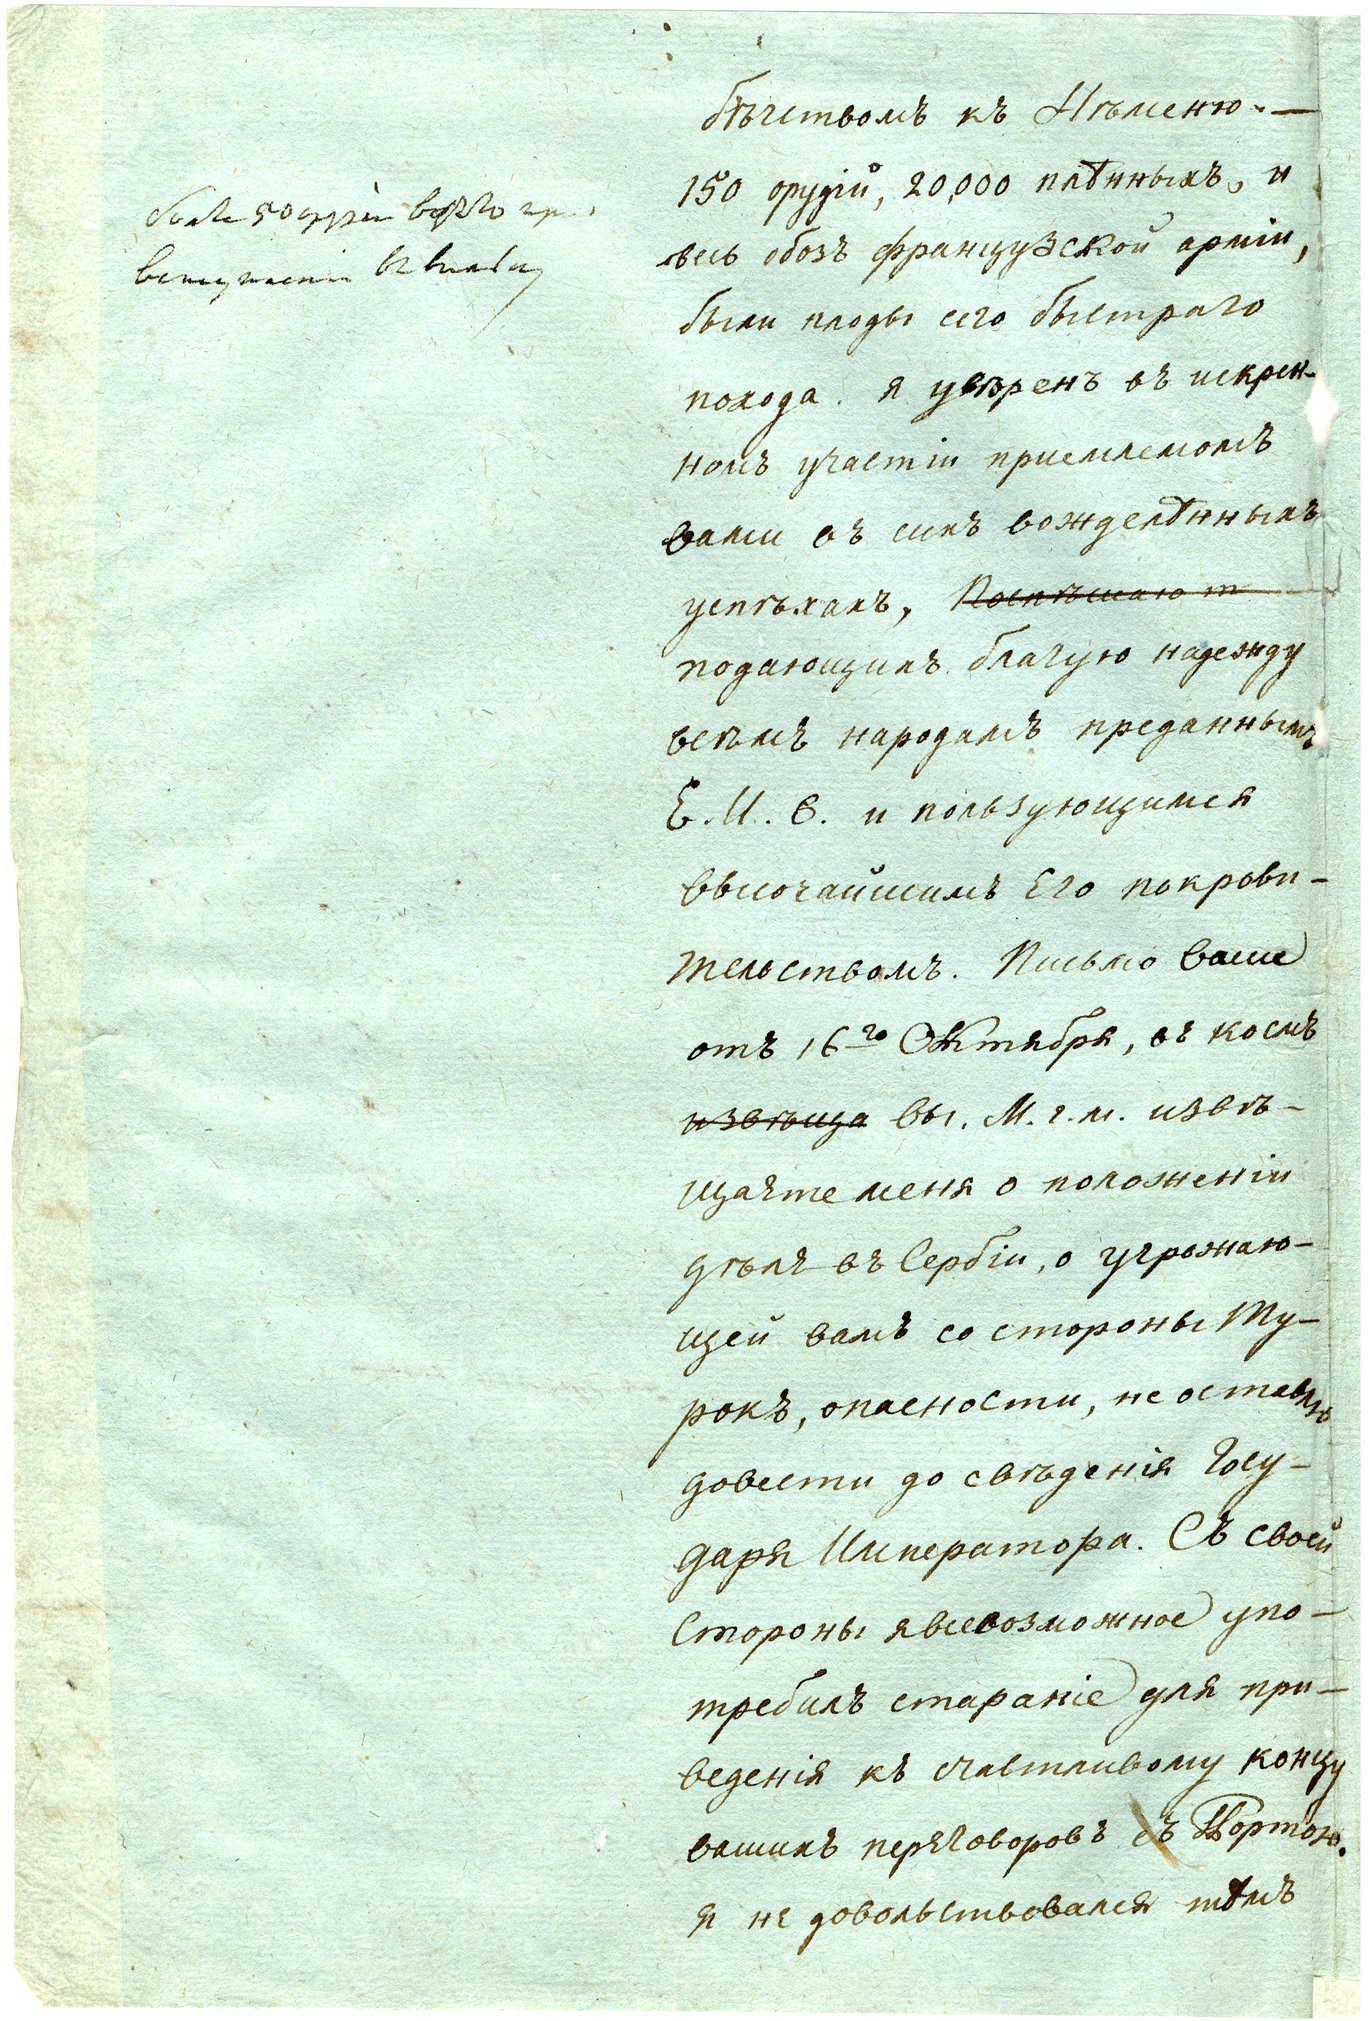 болѣе 50 орудій взято при
вступленіи въ Вильну
бѣгствомъ къ Нѣменю. —
150 орудій, 20,000 плѣнныхъ, и
весь обозъ французской арміи,
были плоды сего быстраго
похода. я увѣренъ въ искрен-
номъ участіи приемлемомъ
вами въ сихъ вожделѣнныхъ
успѣхахъ, Поспѣшаю т
подающихъ благую надежду
всѣмъ народамъ преданнымъ
Е. И. В. и пользующимся
высочайшимъ Его покрови-
тельствомъ. Письмо ваше
отъ 16го Октября, въ коемъ
извѣща вы. М. г. м. извѣ-
щаѣте меня о положеніи
дѣлъ въ Сербіи, о угрожаю-
щей вамъ со стороны Ту-
рокъ, опасности, не оставлю
довести до свѣденія Госу-
даря Императора. Съ своей
Стороны я всевозможное упо-
требилъ стараніе для при-
веденія къ счастливому концу
вашихъ переговоровъ съ Портою.
я не довольствовался тѣмъ